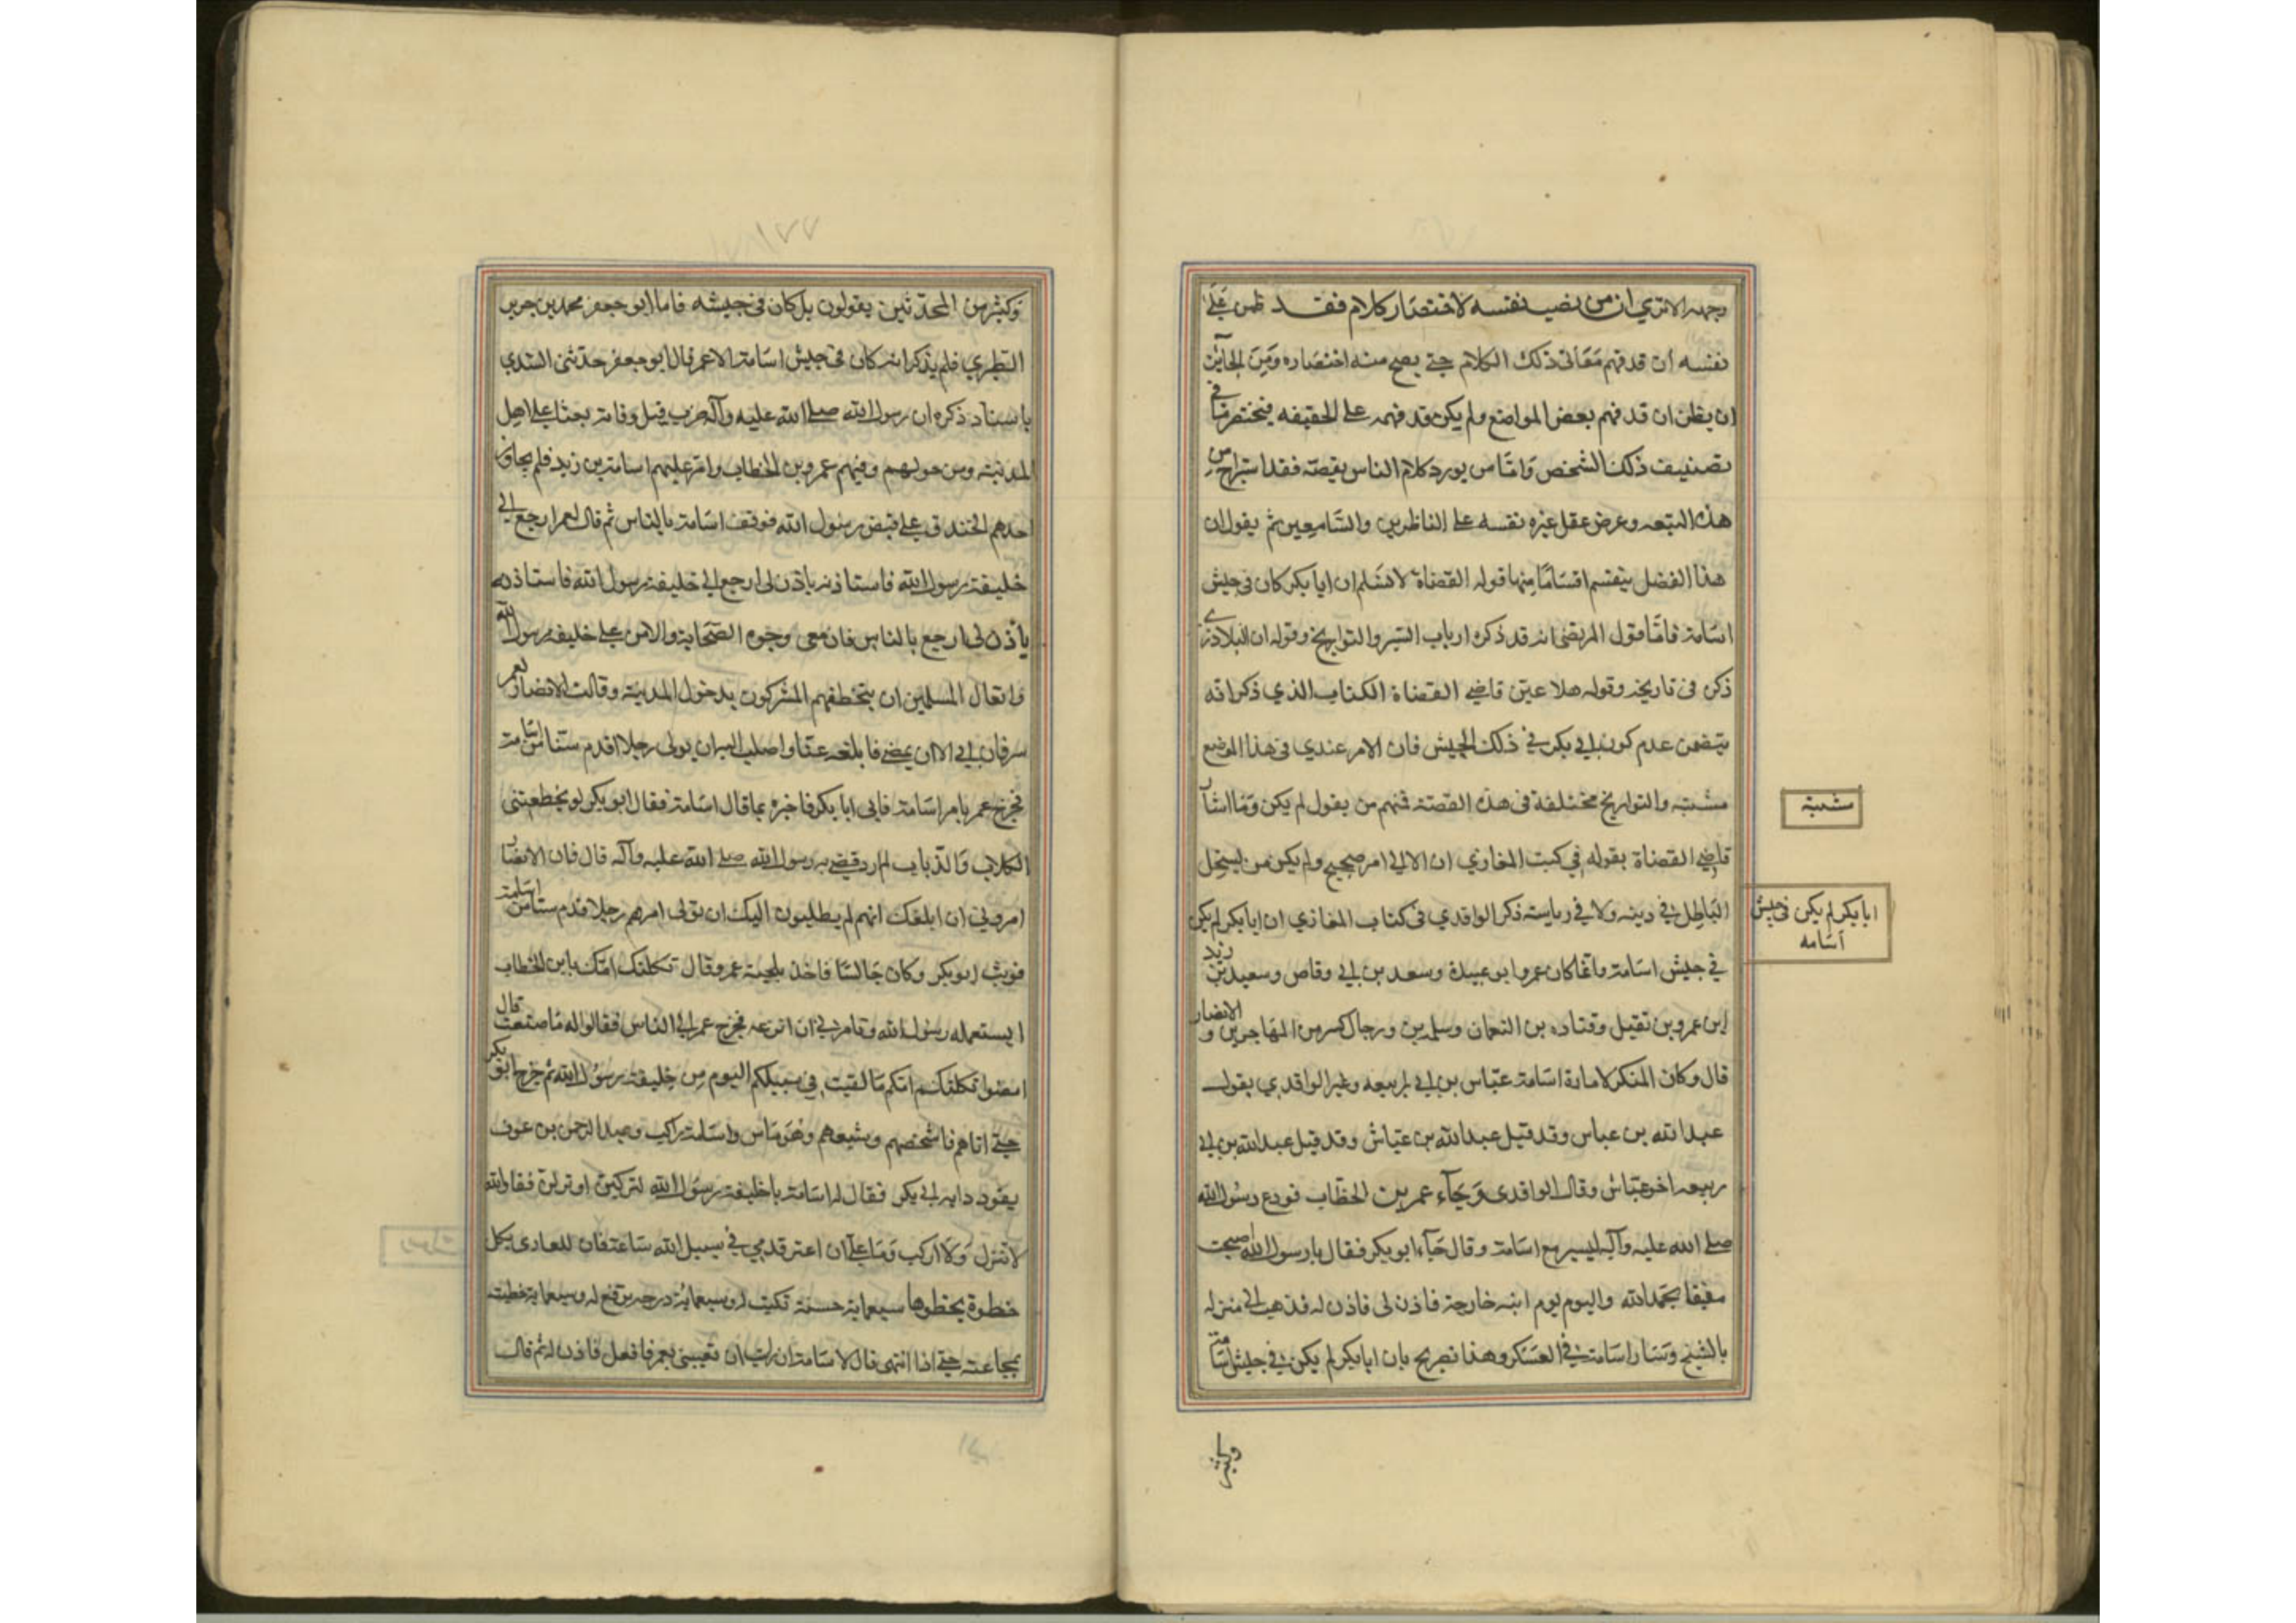 وجهه الا تري ان من نصب نفسه لاختصار كلام فقد ظمن على
نفسه ان قد فهم معاني ذلك الكلام حتى يصح منه اختصاره ومن الجائز
ان يظن ان قد فهم بعض المواضع ولم يكن قد فهمه على الحقيقه فيختصر ما في
تصنيف ذلك الشخص واما من يورد كلام الناس بقصه فقد استراح من
هذه التبعه وعرض عقل غيره نفسه على الناظرين والسامعين ثم يقول ان
هذا الفصل ينقسم اقساما منها قوله القضاة لا نسلم ان ابا بكر كان في جيش
اسامة فاما قول المرتضى انه قد ذكره ارباب السير والتواريخ وقوله ان البلاذري
ذكره في تاريخه وقوله هلا عين قاضي القضاة الكتاب الذي ذكر انه
يتضمن عدم كون ابي بكر في ذلك الجيش فان الامر عندي في هذا الموضع
مشتبه والتواريخ مختلفة في هذه القصة فمنهم من يقول لم يكن وما اشار
شبهة
قاضي القضاة بقوله في كتب المغازي ان الا الي امر صحيح ولم يكن من يستحل
الباطل في دينه ولا في رياسته ذكر الواقدي في كتاب المغازي ان ابا بكر لم يكن
ابا بكر لم يكن في جيش
اسامه
في جيش اسامة وانما كان عمر وابو عبيدة وسعد بن ابي وقاص وسعيد بن زيد
ابن عمرو بن نفيل وقتاده بن النعمان وسلمه بن ورجال كسر من المهاجرين و الانصار
قال وكان المنكر لامارة اسامة عياس بن ابي ربيعه وغير الواقدي يقول
عبد الله بن عباس وقد قيل عبد الله بن عياش وقد قيل عبد الله بن ابي
ربيعه اخو عياش وقال الواقدي وجآء عمر بن الخطاب فودع رسول الله
صلى الله عليه وآله ليسير مع اسامة وقال جآء ابو بكر فقال يا رسول الله اصبحت
مفيقا بحمد الله واليوم يوم ابنه خارجة فاذن لي فاذن له فذهب الى منزله
بالسنح وسار اسامة في العسكر وهذا تصريح بان ابا بكر لم يكن في جيش اسامة
وكثير
وكثير من المحدثين يقولون بل كان في جيشه فاما ابو جعفر محمد بن جرير
الطبري فلم يذكر انه كان في جيش اسامة الا عمر قال ابو جعفر حدثني السدي
باسناد ذكره ان رسول الله صلى الله عليه وآله ضرب قبل وفاته بعثا على اهل
المدينة ومن حولهم وفيهم عمر بن الخطاب وامر عليهم اسامة بن زيد فلم يجاوز
احدهم الخندق على قبض رسول الله فوقف اسامة بالناس ثم قال لعمر ارجع الى
خليفة رسول الله فاستاذنه ياذن لي ارجع الى خليفة رسول الله فاستاذنه
ياذن لي ارجع بالناس فان معي وجوه الصحابة والامن على خليفة رسول الله
واثقال المسلمين ان يتخطفهم المشركون بدخول المدينة وقالت الانصار لعمر
سر فان ابى الا ان يمضي فابلغه عنا واطلب اليه ان يولى رجلا اقدم سنا من اسامة
فخرج عمر بامر اسامة فاتى ابا بكر فاخبره بما قال اسامة فقال ابو بكر لو تخطفتني
الكلاب والذياب لم ارد قضى به رسول الله صلى الله عليه وآله قال فان الانصار
امروني ان ابلغك انهم لم يطلبون اليك ان تولى امرهم رجلا قدم سنا من اسامة
فوثب ابو بكر وكان جالسا فاخذ بلحية عمر وقال ثكلتك امك يا ابن الخطاب
ايستعمله رسول الله وتامرني ان انزعه فخرج عمر الى الناس فقالوا له ما صنعت قال
امضوا ثكلتكم امكم ما لقيت في سبيلكم اليوم من خليفة رسول الله ثم خرج ابو بكر
حتى اتاهم فاشخصهم وشيعهم وهو ماش واسامة راكب وعبد الرحمن بن عوف
يقود دابة ابي بكر فقال له اسامة يا خليفة رسول الله لتركبن او لانزلن فقال والله
لا تنزل ولا اركب وما علي ان اغبر قدمي في سبيل الله ساعة فان للغازي بكل
خطوة يخطوها سبعمائة حسنة تكتب له وسبعمائة درجه ترفع له وسبعمائة خطيئة
تمحا عنه حتى اذا انتهى قال لاسامة ان رايت ان تعينني بعمر فافعل فاذن له ثم قال